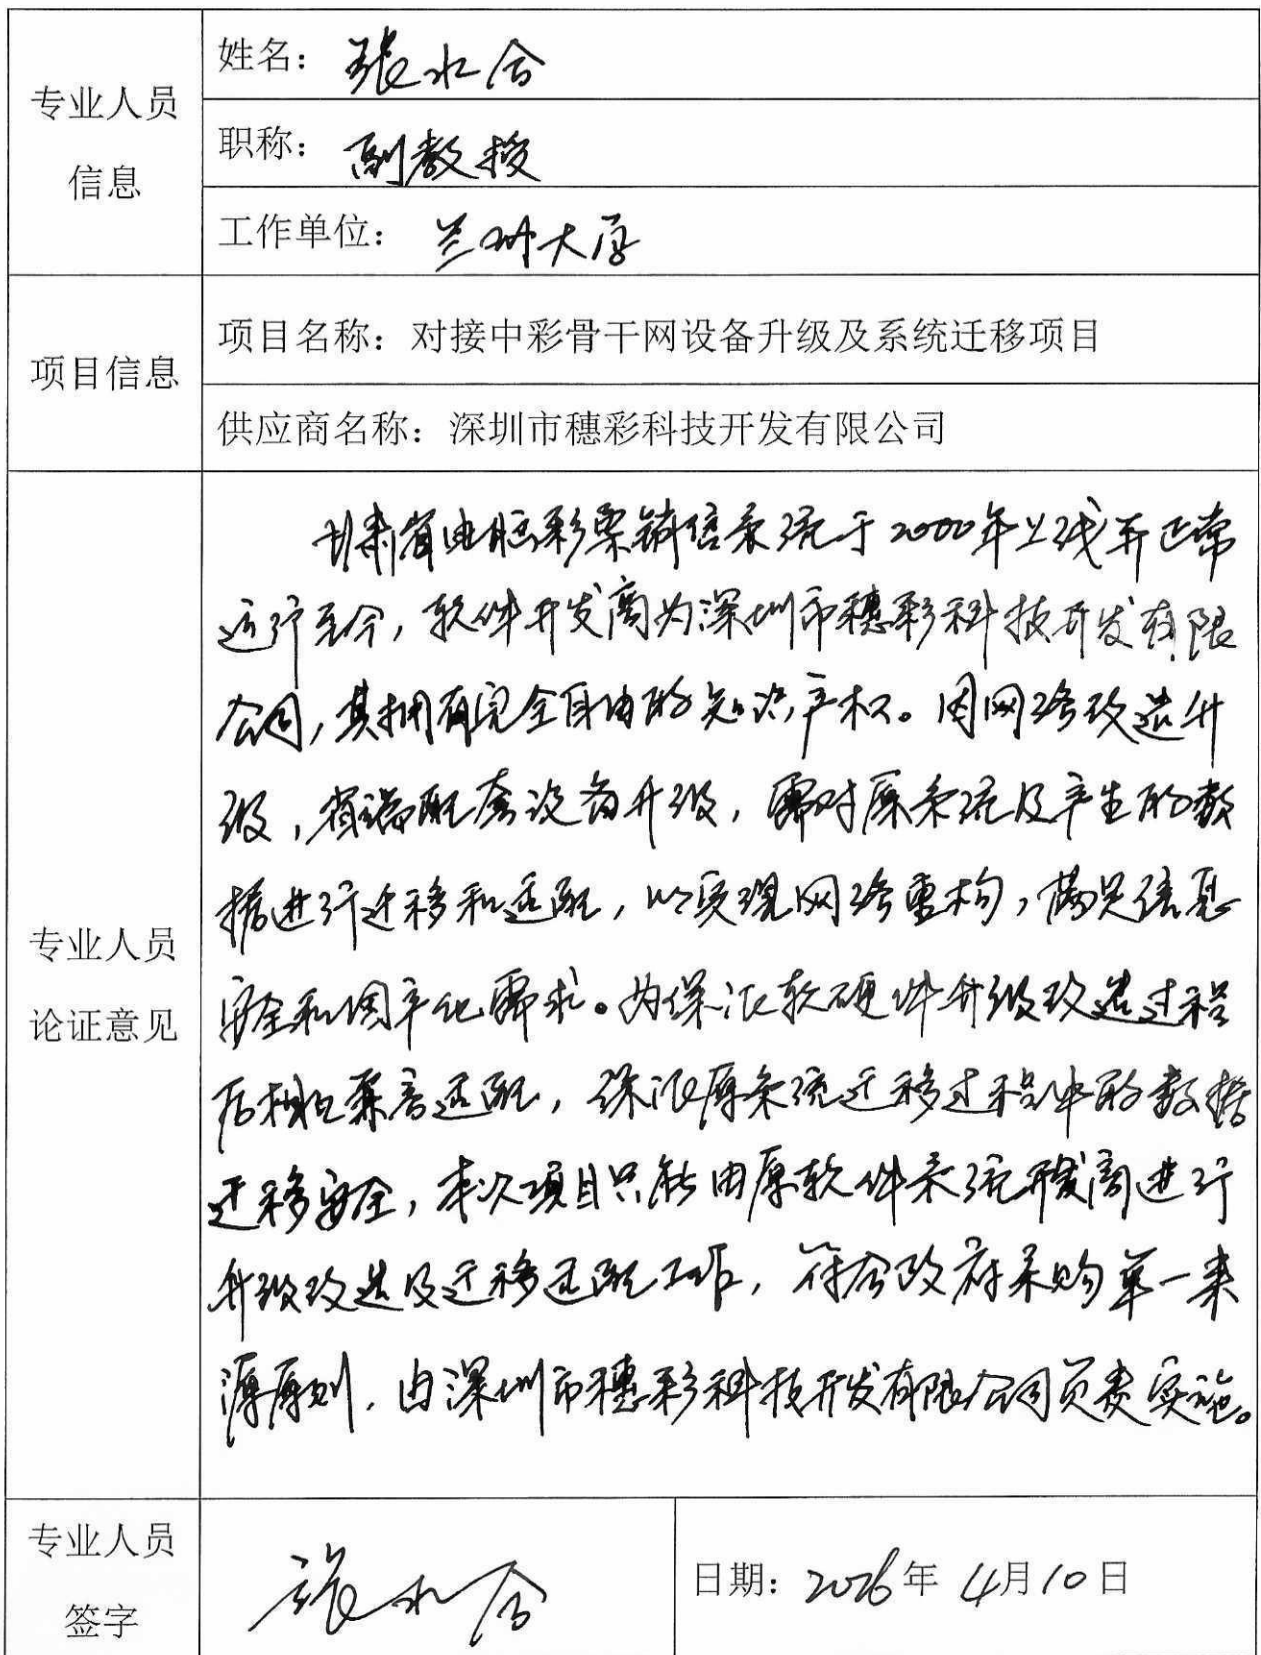 专业人员
信息
姓名：张水合
职称：副教授
工作单位：兰州大学
项目信息
项目名称：对接中彩骨干网设备升级及系统迁移项目
供应商名称：深圳市穗彩科技开发有限公司
专业人员
论证意见
甘肃省电脑彩票销售系统于2000年上线并正常
运行至今，软件开发商为深圳市穗彩科技开发有限
公司，其拥有完全自由的知识产权。因网络改造升
级，省端配套设备升级，需对原系统及产生的数
据进行迁移和适配，以实现网络重构，满足信息
安全和国产化需求。为保证软硬件升级改造过程
后相互兼容适配，保证原系统迁移过程中的数据
迁移安全，本次项目只能由原软件系统开发商进行
升级改造及迁移适配工作，符合政府采购单一来
源原则，由深圳市穗彩科技开发有限公司负责实施。
专业人员
签字
张水合
日期：2026年4月10日